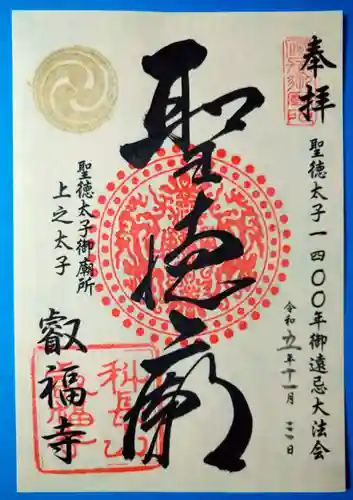 奉拝
聖徳太子一四〇〇年御遠忌大法会
令和 年十一月 日
聖徳廟
聖徳太子御廟所
上之太子
叡福寺
科長